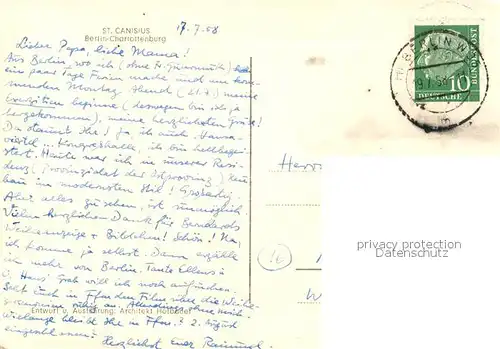 ST. CANISIUS
Berlin-Charlottenburg
17.7.58
Lieber Papa, liebe Mama!
Aus Berlin, wo ich (ohne
ein paar Tage Ferien mache und am kom-
menden Montag Abend (21.7.) meine
Exerzitien beginne (deswegen bin ich ja
hergekommen), meine herzlichsten Grüße!
Da staunt Ihr! Ja, ich auch. Hansa-
viertel... Kongreßhalle, ich bin hellbegei-
stert. Heute war ich in unserer Resi-
denz (Provinzialat der Ostprovinz) Neu-
bau im modernsten Stil! Großartig.
Aber alles zu sehen, ist unmöglich.
Vielen herzlichen Dank für
+ Bildchen! Schön! Na,
ich komme ja selbst. Dann erzähle
ich mehr von Berlin. Tante Ellens
O. Hans' Grab will ich noch aufsuchen.
Seht Euch in Ffm den Film über die Weihe
an.
Entwurf u. Ausführung: Architekt Hofbauer
wielange bleibt Ihr in Ffm.? 2. August
Herzlichst Euer Raimund.
BERLIN W
19.7.58
10
DEUTSCHE
BUNDESPOST
Herrn
privacy protection
Datenschutz